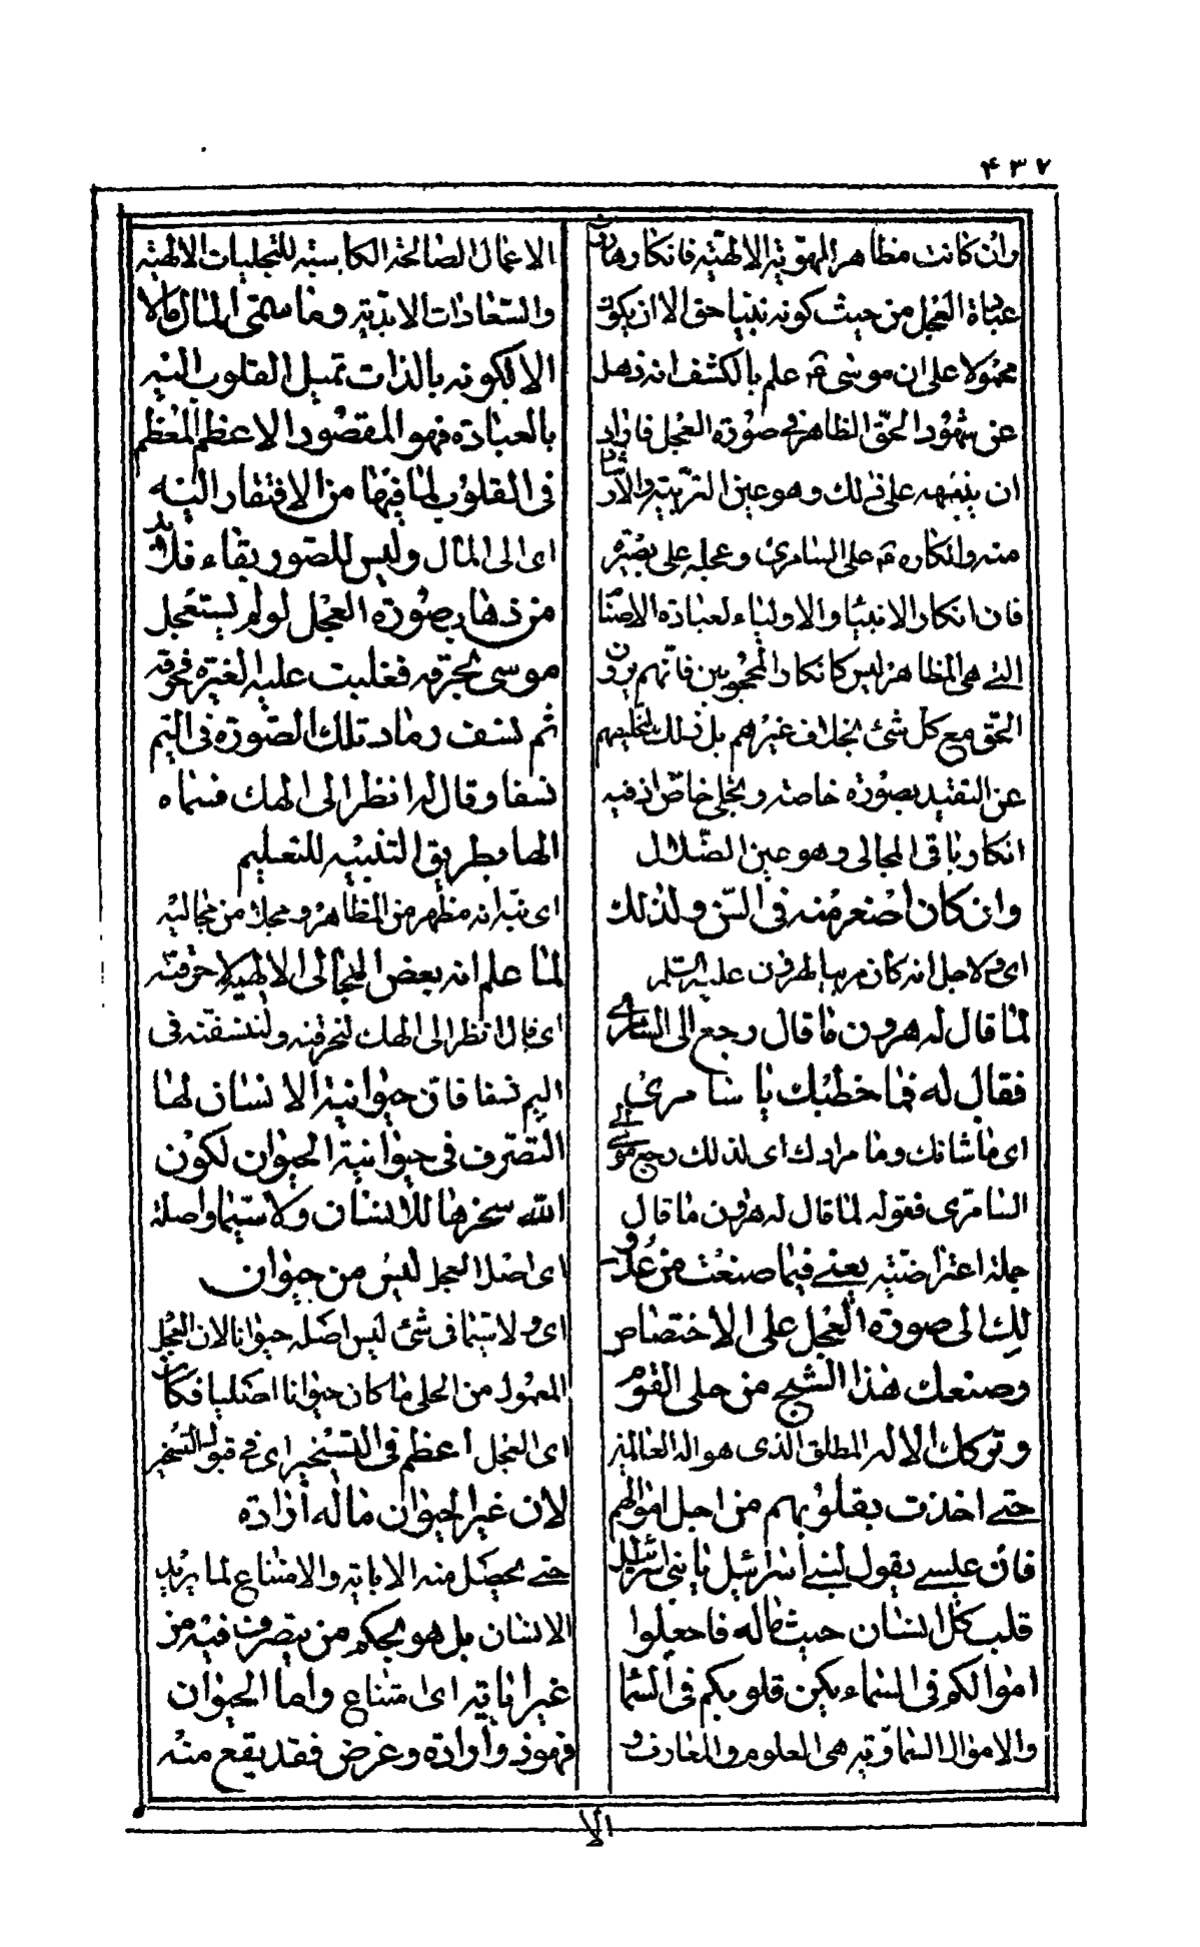 ۴۳۷
وان كانت مظاهر الهوّية الالهيّة فانكار هارون
عبادة العجل من حيث كونه نبيّا حق الا ان يكون
محمولا على ان موسى ؑم علم بالكشف انه ذهل
عن شهود الحقّ الظاهر فى صورة العجل فاراد
ان ينبهه على ذلك وهو عين التربية والارشاد
منه وانكاره ؑم على السامرى وعجله على بصيرة
فان انكار الانبيا والاولياء لعبادة الاصنام
التى هى المظاهر ليس كانكار المحجوبين فانّهم يرون
الحق مع كل شئ بخلاف غيرهم بل ذلك لتخليصهم
عن التقييد بصورة خاصة ومجلى خاصّ اذ فيه
انكار باقى المجالى وهو عين الضّلال
وان كان أصغر منه فى السّن ولذلك
اى ولاجل انه كان مربيا لهرون عليه السّلم
لمّا قال له هرون ما قال رجع الى السامرى
فقال له فما خطبك يا سامرى
اى ما شانك وما مرادك اى لذلك رجع موسى الى
السامرى فقوله لما قال له هرون ما قال
جملة اعتراضيّة يعنى فيما صنعت من عدو
لك الى صورة العجل على الاختصاص
وصنعك هذا الشبح من حلى القوم
وتركك الاله المطلق الذى هو اله العالمين
حتى اخذت بقلوبهم من اجل اموالهم
فان عيسى يقول لبنى اسرائيل يا بنى اسرائيل
قلب كلّ انسان حيث ماله فاجعلوا
اموالكم فى السّماء يكن قلوبكم فى السّماء
والاموال السّماوية هى العلوم والمعارف و
الاعمال الصالحة الكاسبة للتجليات الالهية
والسّعادات الابديّة وما سمّى المال مالا
الا لكونه بالذات تميل القلوب اليه
بالعبادة فهو المقصود الاعظم المعظم
فى القلوب لما فيها من الافتقار اليه
اى الى المال وليس للصّور بقاء فلابد
من ذهاب صورة العجل لو لم يستعجل
موسى بحرقه فغلبت عليه الغيرة فحرقه
ثم نسف رماد تلك الصّورة فى اليم
نسفا وقال له انظر الى الهك فسماه
الها بطريق التنبيه للتعليم
اى نبه انه مظهر من المظاهر ومجلى من مجاليه
لمّا علم انه بعض المجالى الالهيه لاحرقنّه
اى قال انظر الى الهك لنحرقنه ولننسفنّه فى
اليم نسفا فان حيوانية الانسان لها
التصّرف فى حيوانية الحيوان لكون
الله سخرها للانسان ولا سيّما واصله
اى اصل العجل ليس من حيوان
اى ولا سيّما فى شئ ليس اصله حيوانا لان العجل
المعمول من الحلى ما كان حيوانا اصليا فكان
اى العجل اعظم فى التسخير اى فى قبول التسخير
لان غير الحيوان ما له أرادة
حتى يحصل منه الاباية والامتناع لما يريد
الانسان بل هو بحكم من يتصرف فيه من
غير اباية اى امتناع واما الحيوان
فهو ذو أرادة وغرض فقد يقع منه
الا